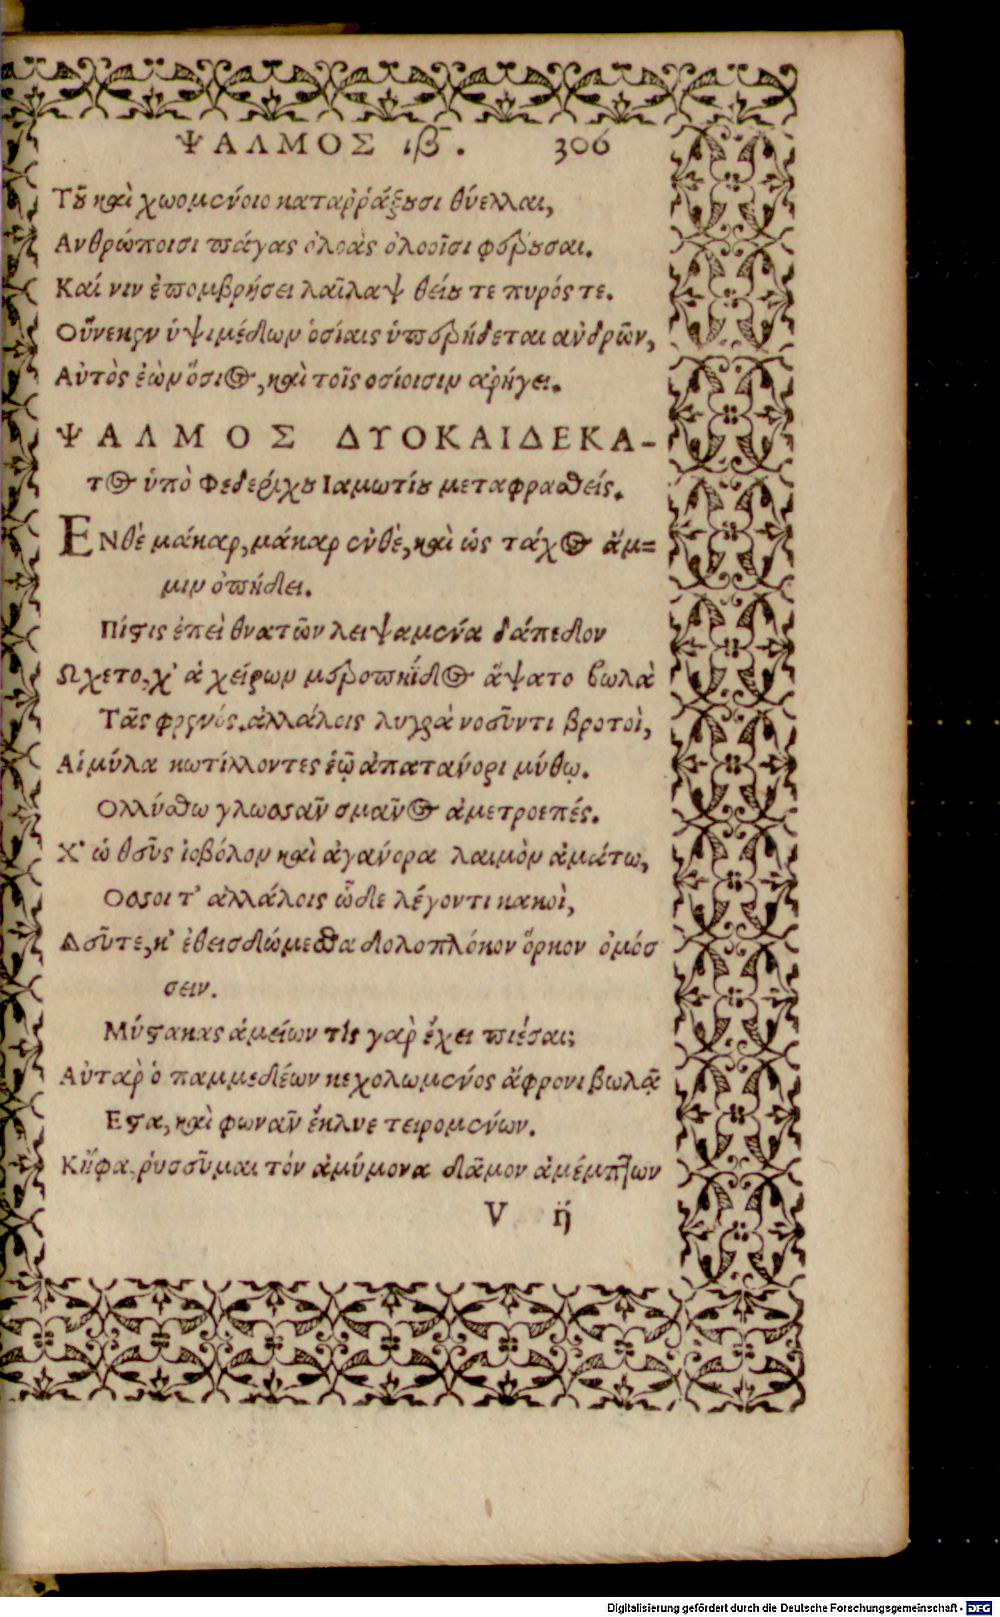 ΨΑΛΜΟΣ ιβ. 306
Τȣ καὶ χωομένοιο καταῤῥάξȣσι θύελλαι,
Ανθρώποισι πάγας ὀλοὰς ὀλοοῖσι φέρȣσαι.
Καί νιν ἐπομβρήσει λαῖλαψ θείȣ τε πυρός τε.
Οὕνεκεν ὑψιμέδων ὁσίαις ὑπερήδεται ἀνδρῶν,
Αὐτὸς ἐὼν ὅσιος, καὶ τοῖς ὁσίοισιν ἀρήγει.
ΨΑΛΜΟΣ ΔΥΟΚΑΙΔΕΚΑ-
τος ὑπὸ Φεδερίχȣ Ιαμωτίȣ μεταφρασθείς.
ΕΝθὲ μάκαρ, μάκαρ ἐνθὲ, καὶ ὡς τάχος ἄμ=
μιν ὀπήδει.
Πίστις ἐπεὶ θνατῶν λειψαμένα δάπεδον
Ωχετο, χ' ἁ χείρων μεροπηΐδος ἅψατο βωλὰ
Τᾶς φρενός. ἀλλάλοις λυγρὰ νοεῦντι βροτοὶ,
Αἱμύλα κωτίλλοντες ἑῷ ἀπατάνορι μύθῳ.
Ολλύσθω γλωσσᾶν σμᾶνος ἀμετροεπές.
Χ' ὡ θεῦς ἰοβόλον καὶ ἀγάνορα λαιμὸν ἀμάτω,
Οσσοι τ' ἀλλάλοις ὧδε λέγοντι κακοὶ,
Δεῦτε, κ' ἐθεισδώμεσθα δολοπλόκον ὅρκον ὀμόσ
σειν.
Μύστακας ἁμείων τίς γαρ ἔχει πιέσαι;
Αὐτὰρ ὁ παμμεδέων κεχολωμένος ἄφρονι βωλᾷ
Εστα, καὶ φωνᾶν ἔκλυε τειρομένων.
Κἤφα, ῥυσσεῦμαι τόν ἀμύμονα δᾶμον ἀμέμπτων
V ij
Digitalisierung gefördert durch die Deutsche Forschungsgemeinschaft - DFG